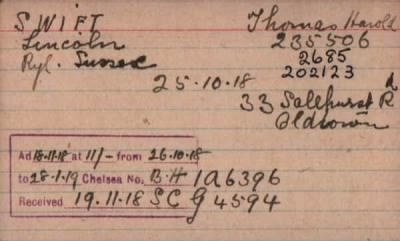 SWIFT Thomas Harold
Lincoln 235506
Ryl. Sussex 2685
202123
25.10.18
33 Salehurst Rd
Oldtown
Ad 18.11.18 at 11/- from 26.10.18
to 28.1.19 Chelsea No. B.H 1A6396
Received 19.11.18 SC G 4594